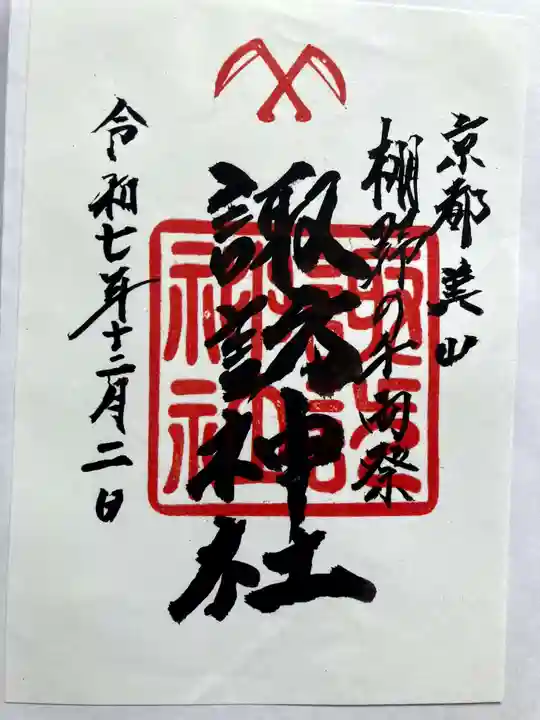 京都美山
棚野の千両祭
諏訪神社
諏訪神社
令和七年十二月二日